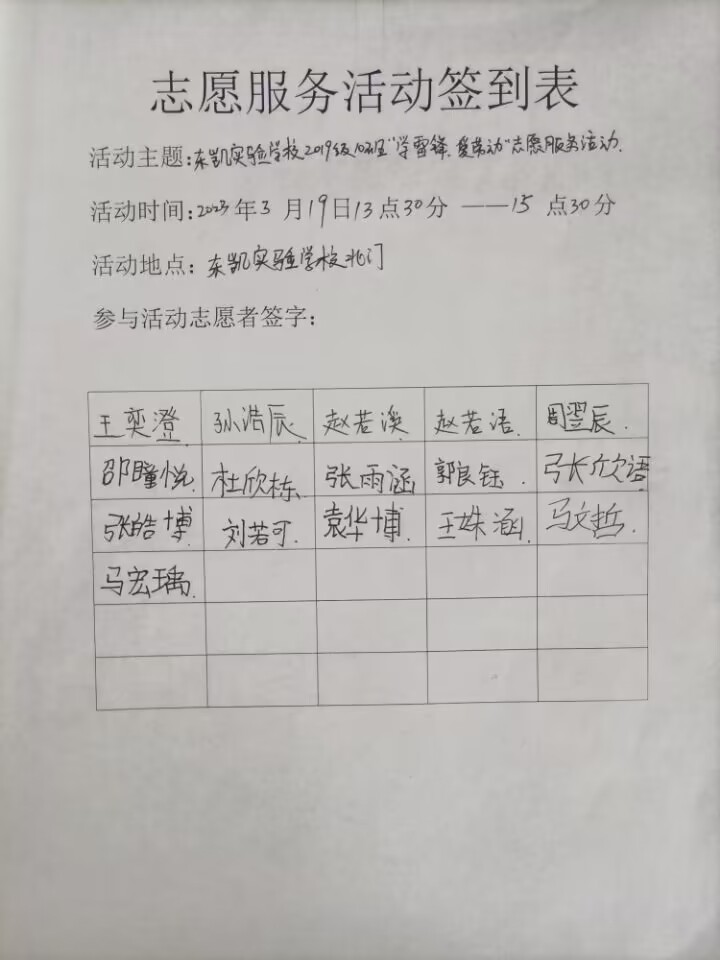 志愿服务活动签到表
活动主题:东凯实验学校2019级10班"学雷锋、爱劳动"志愿服务活动.
活动时间:2023年3月19日13点30分——15点30分
活动地点:东凯实验学校北门
参与活动志愿者签字:
王奕澄. 孙浩辰. 赵若溪 赵若语. 周翌辰.
邵瞳悦. 杜欣栋. 张雨涵 郭良钰. 张欣语
张皓博. 刘若可. 袁华博. 王姝涵. 马文哲.
马宏瑀.